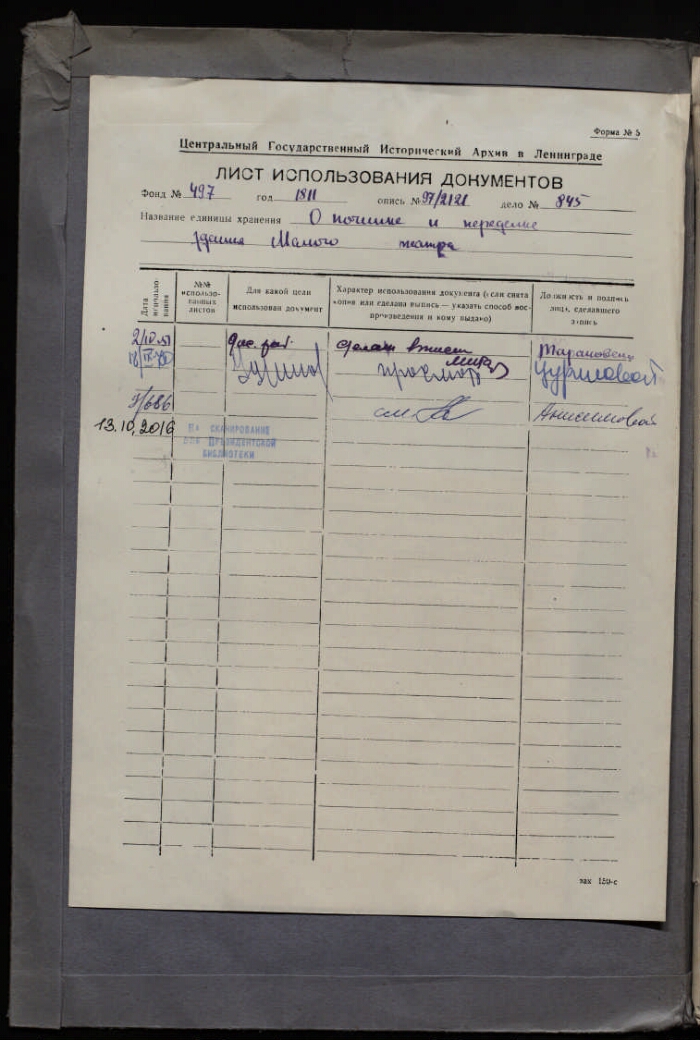 Форма № 5
Центральный Государственный Исторический Архив в Ленинграде
ЛИСТ ИСПОЛЬЗОВАНИЯ ДОКУМЕНТОВ
Фонд № 497 год 1811 опись № 97/2121 дело № 845
Название единицы хранения О починке и переделке
здания Малого театра
Дата использования
№№ использованных листов
Для какой цели использован документ
Характер использования документа (если снята копия или сделана выпись — указать способ воспроизведения и кому выдано)
Должность и подпись лица, сделавшего запись
просмотр
Анисимовой
13.10.2016 На сканирование
для Президентской
библиотеки
зак 150-с